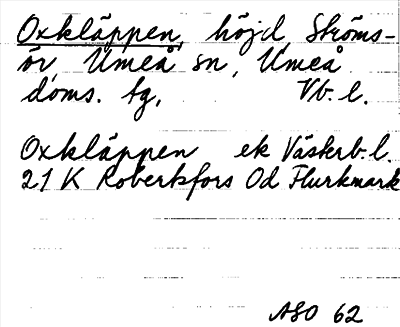 Oxkläppen, höjd, Ströms-
ör, Umeå sn, Umeå
doms. tg, Vb. l.
Oxkläppen ek Västerb. l.
21 K Robertsfors Od Flurkmark
ASO 62